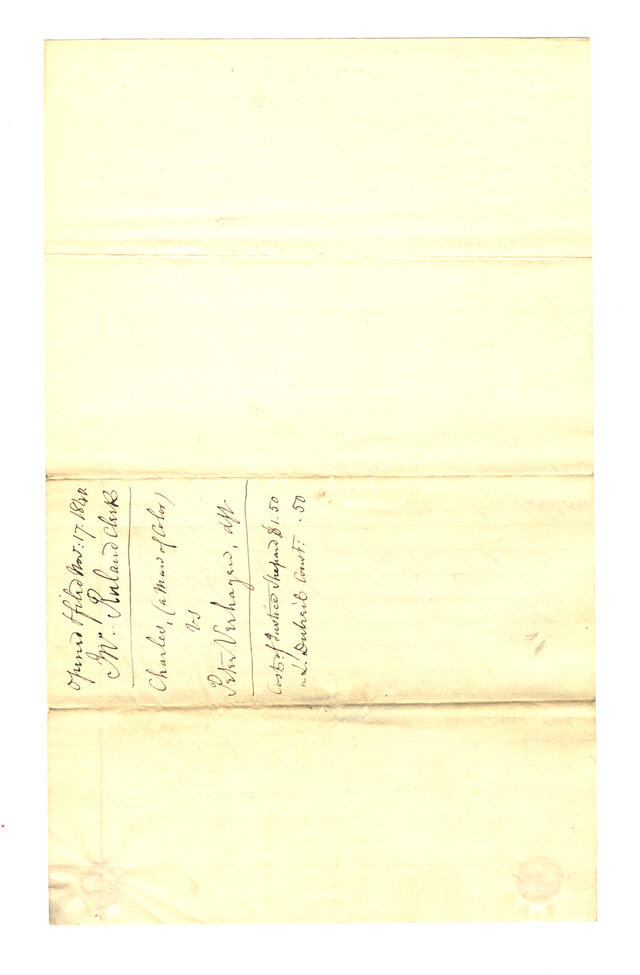 Opened & filed Nov: 17. 1840.
Jno. Ruland Clerk
Charles, (a man of Color)
vs
Peter Verhagen, dft
Cost of Justice Shepard $1.50
" L. Dubreil Const: .50